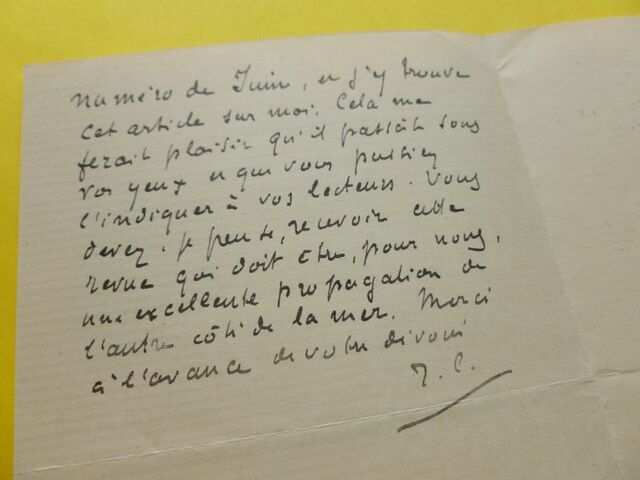 numéro de Juin, et j'y trouve
cet article sur moi. Cela me
ferait plaisir qu'il passât sous
vos yeux et que vous puissiez
l'indiquer à vos lecteurs. Vous
devez, je pense, recevoir cette
revue qui doit être, pour nous,
une excellente propagation de
l'autre côté de la mer. Merci
à l'avance de votre dévoué
J. C.